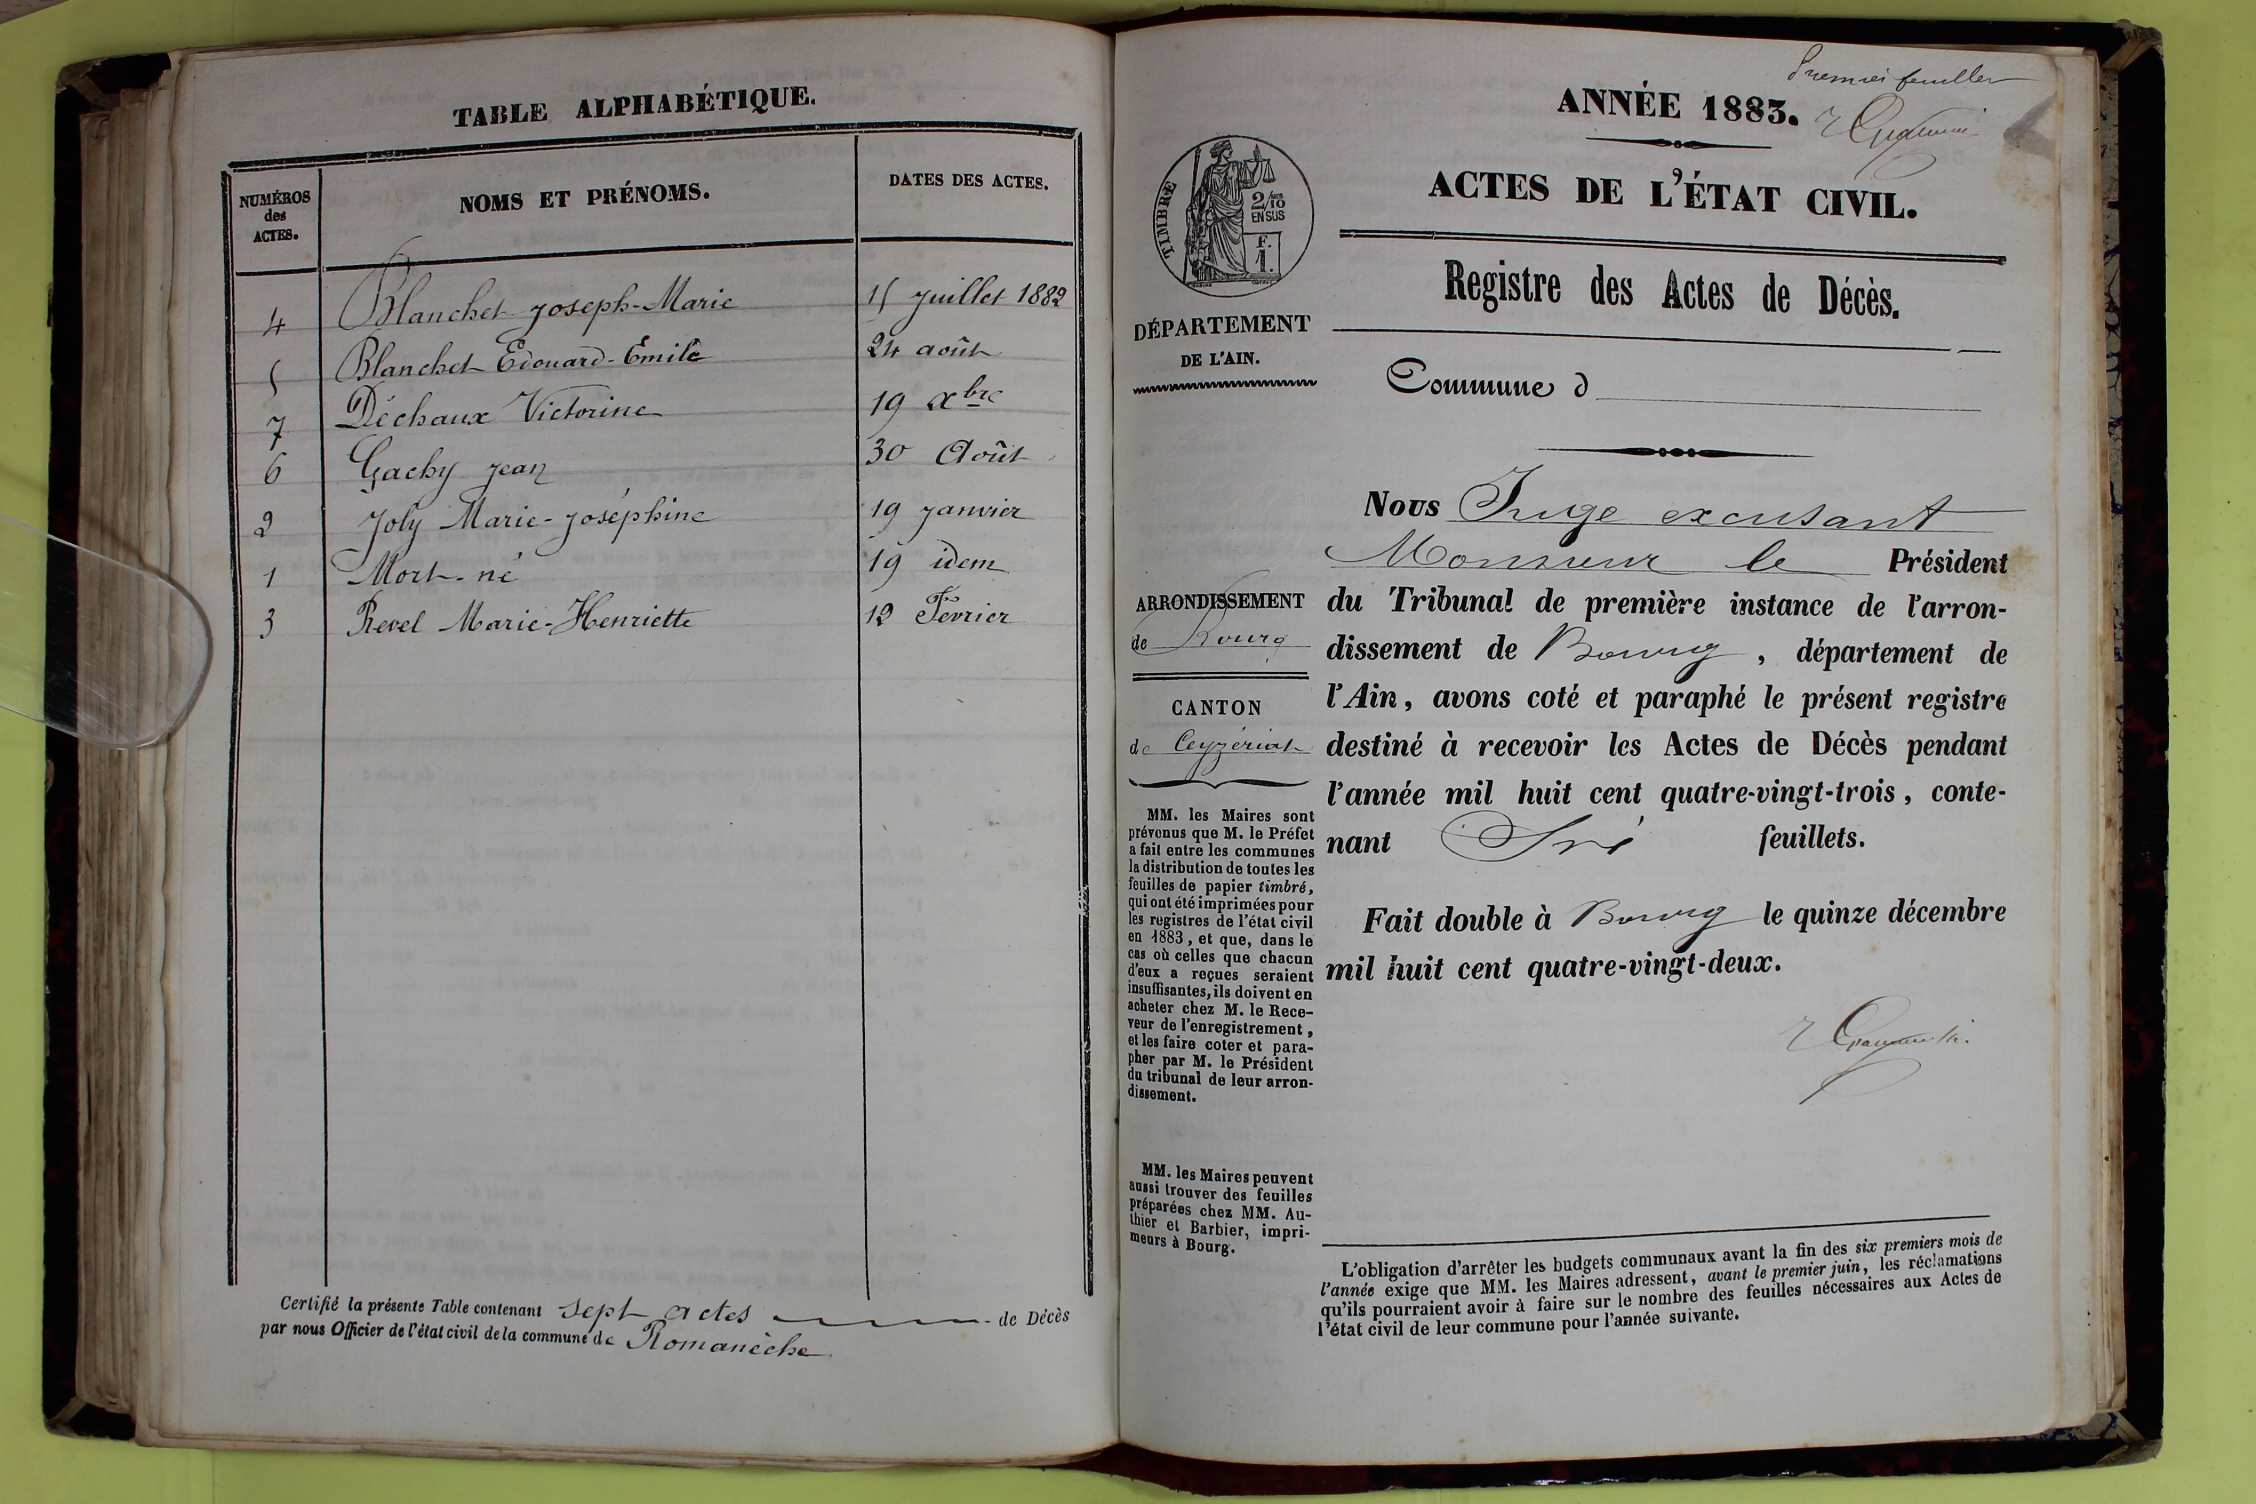 TABLE ALPHABÉTIQUE.
NUMÉROS
des
ACTES.
NOMS ET PRÉNOMS.
DATES DES ACTES.
4 Blanchet Joseph-Marie 15 Juillet 1882
5 Blanchet Edouard-Émile 24 août
7 Déchaux Victorine 19 Xbre
6 Gachy Jean 30 Août
2 Joly Marie-Joséphine 19 Janvier
1 Mort-né 19 idem
3 Revel Marie-Henriette 12 Février
Certifié la présente Table contenant sept actes de Décès
par nous Officier de l'état civil de la commune de Romanèche
Premier feuillet
ANNÉE 1883.
ACTES DE L'ÉTAT CIVIL.
TIMBRE
2/10
EN SUS
F.
1.
DÉPARTEMENT
DE L'AIN.
Registre des Actes de Décès.
Commune d
ARRONDISSEMENT
de Bourg
CANTON
de Ceyzériat
MM. les Maires sont
prévenus que M. le Préfet
a fait entre les communes
la distribution de toutes les
feuilles de papier timbré,
qui ont été imprimées pour
les registres de l'état civil
en 1883, et que, dans le
cas où celles que chacun
d'eux a reçues seraient
insuffisantes, ils doivent en
acheter chez M. le Rece-
veur de l'enregistrement,
et les faire coter et para-
pher par M. le Président
du tribunal de leur arron-
dissement.
MM. les Maires peuvent
aussi trouver des feuilles
préparées chez MM. Au-
thier et Barbier, impri-
meurs à Bourg.
Nous Juge excusant
Monsieur le Président
du Tribunal de première instance de l'arron-
dissement de Bourg, département de
l'Ain, avons coté et paraphé le présent registre
destiné à recevoir les Actes de Décès pendant
l'année mil huit cent quatre-vingt-trois, conte-
nant feuillets.
Fait double à Bourg le quinze décembre
mil huit cent quatre-vingt-deux.
L'obligation d'arrêter les budgets communaux avant la fin des six premiers mois de
l'année exige que MM. les Maires adressent, avant le premier juin, les réclamations
qu'ils pourraient avoir à faire sur le nombre des feuilles nécessaires aux Actes de
l'état civil de leur commune pour l'année suivante.